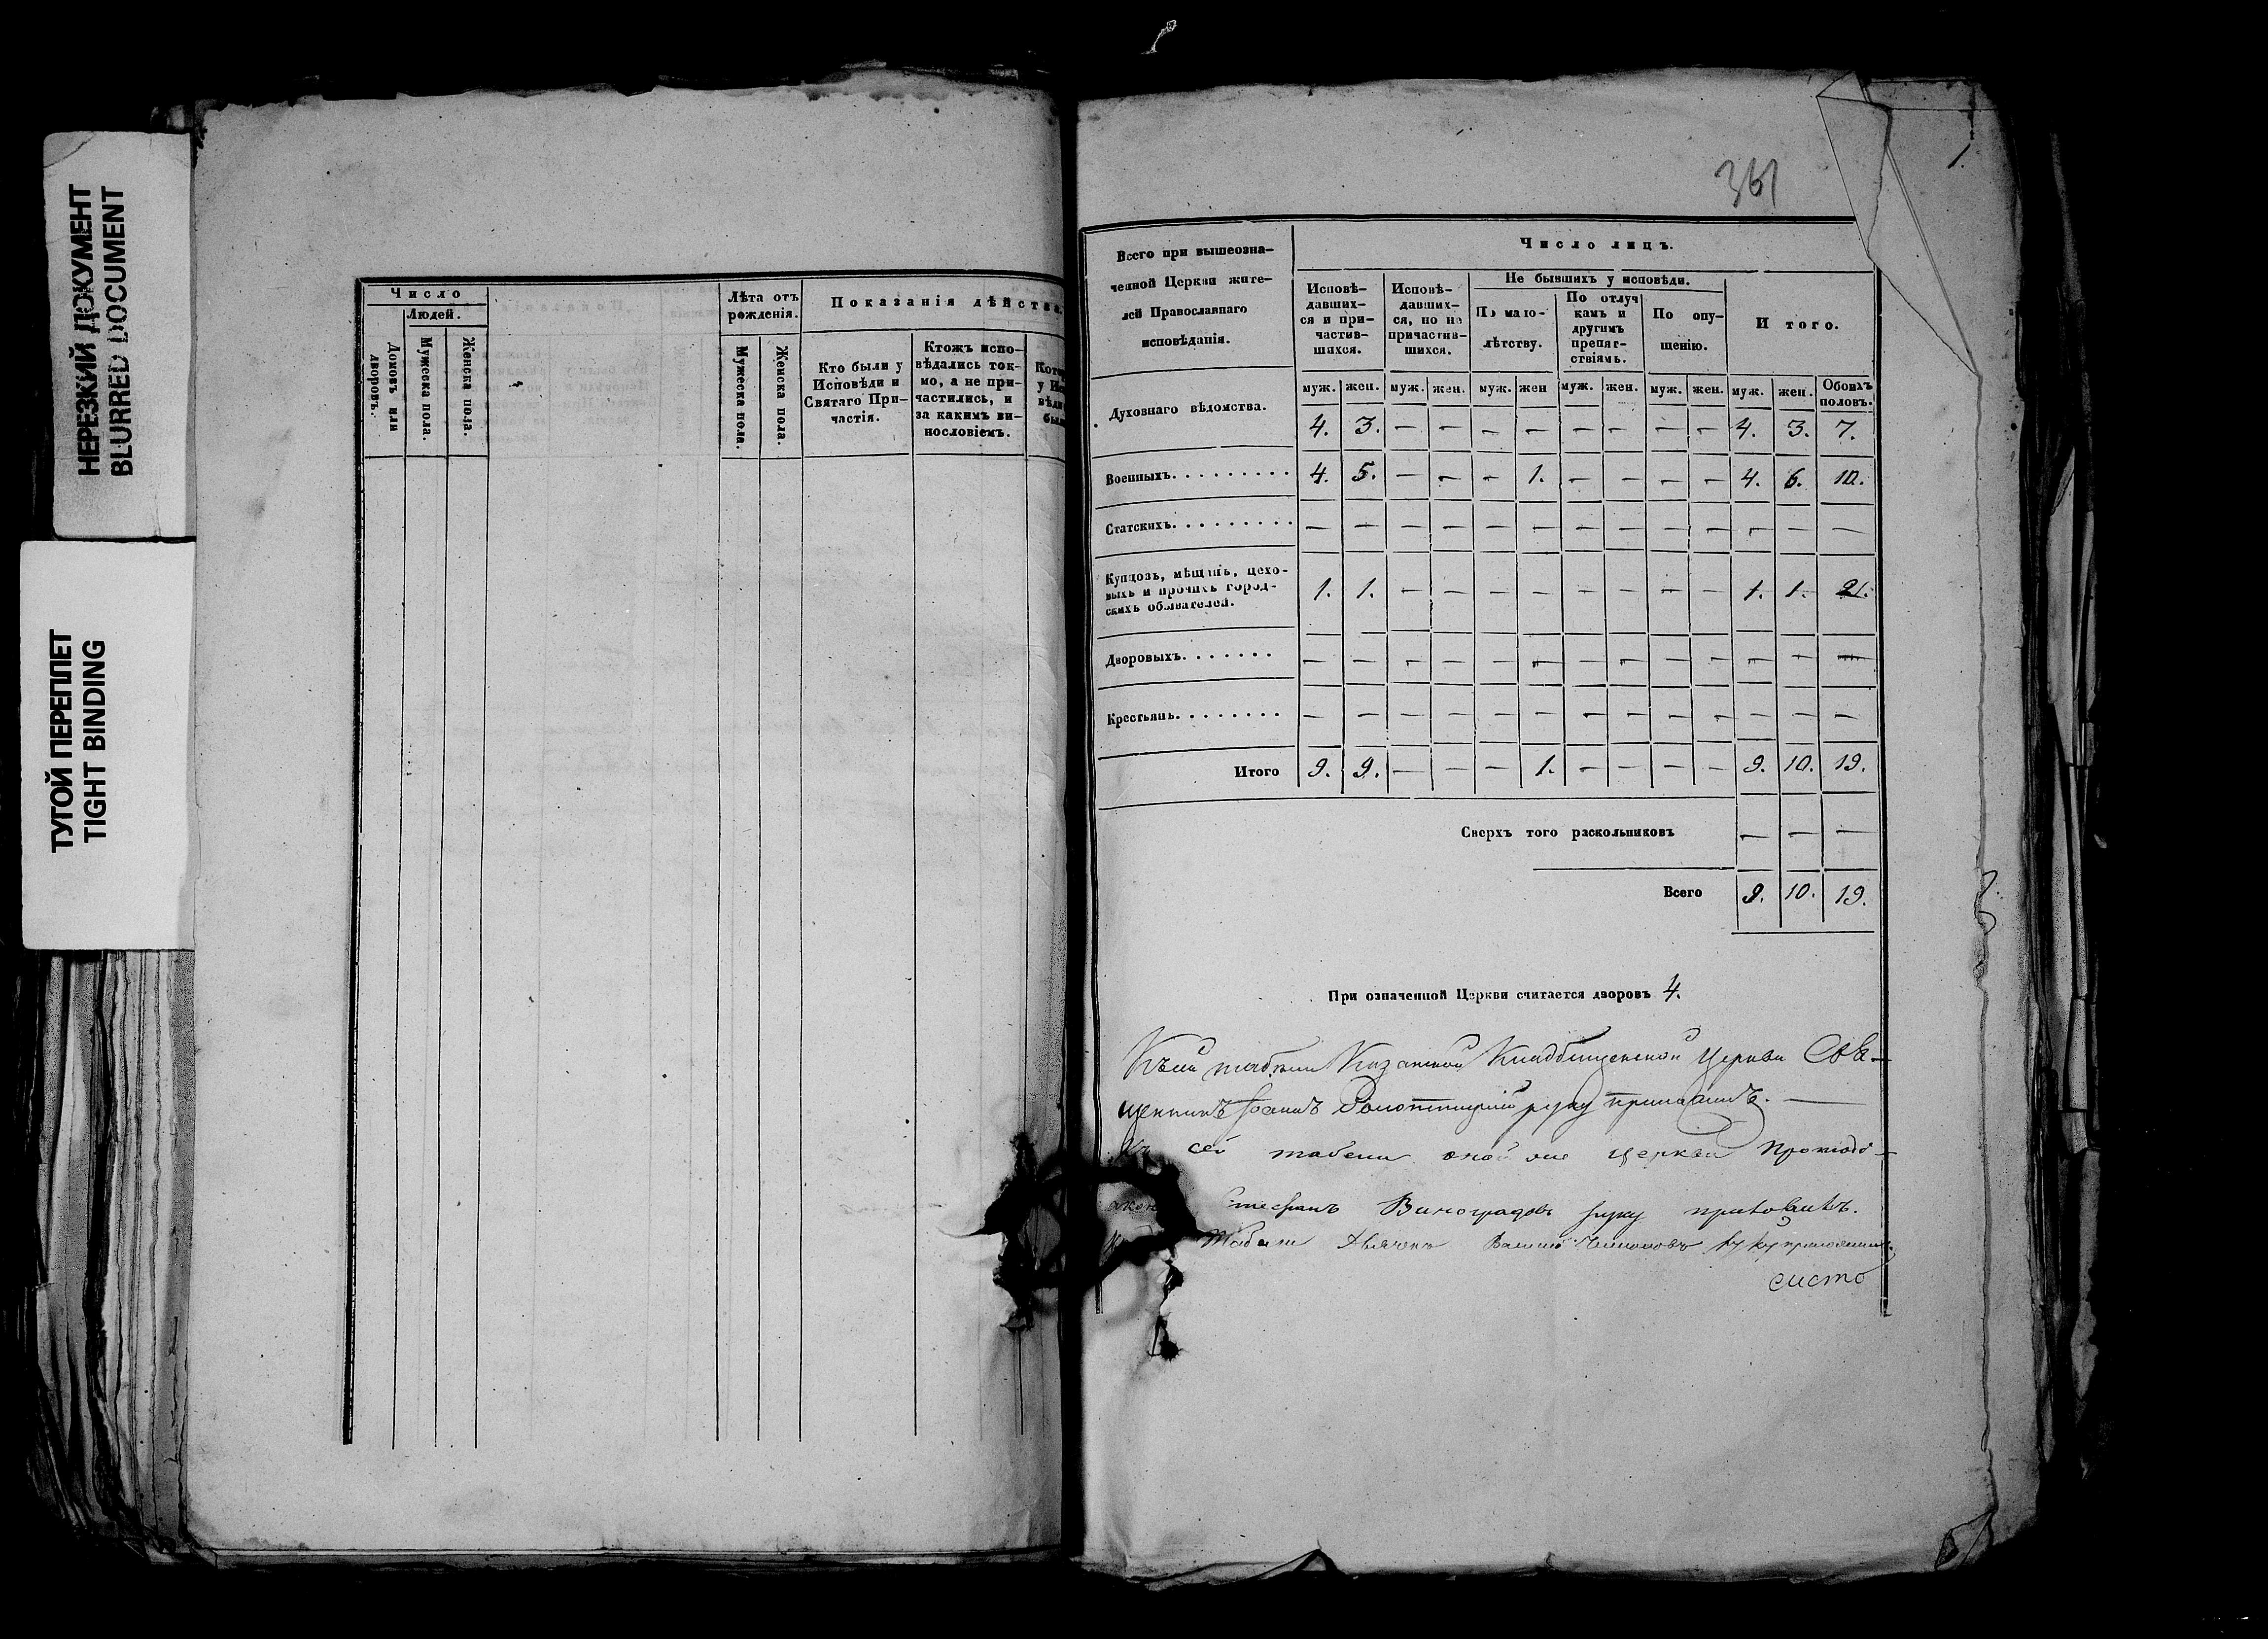 НЕРЕЗКИЙ ДОКУМЕНТ
BLURRED DOCUMENT
ТУГОЙ ПЕРЕПЛЕТ
TIGHT BINDING
Число
Людей.
Домовъ или дворовъ.
Мужеска пола.
Женска пола.
Лѣта отъ рожденія.
Мужеска пола.
Женска пола.
Показанія дѣйства.
Кто были у
Исповѣди и
Святаго При-
частія.
Ктожъ испо-
вѣдались ток-
мо, а не при-
частились, и
за какимъ ви-
нословіемъ.
361
1.
Всего при вышеозна-
ченной Церкви жите-
лей Православнаго
исповѣданія.
Число лицъ.
Исповѣ-
давших-
ся и при-
частив-
шихся.
Исповѣ-
давших-
ся, но не
причастив-
шихся.
Не бывшихъ у исповѣди.
По мало-
лѣтству.
По отлуч
камъ и
другимъ
препят-
ствіямъ.
По опу-
щенію.
И того.
муж. жен. муж. жен. муж. жен муж. жен. муж. жен. муж. жен. Обоихъ половъ.
Духовнаго вѣдомства. 4. 3. — — — — — — — — 4. 3. 7.
Военныхъ. . . . . . . . . 4. 5. — — — 1. — — — — 4. 6. 10.
Статскихъ. . . . . . . . . — — — — — — — — — — — — —
Купцовъ, мѣщанъ, цехо-
выхъ и прочихъ город-
скихъ обывателей. 1. 1. — — — — — — — — 1. 1. 2.
Дворовыхъ. . . . . . . — — — — — — — — — — — — —
Крестьянъ. . . . . . . . — — — — — — — — — — — — —
Итого 9. 9. — — — 1. — — — — 9. 10. 19.
Сверхъ того раскольниковъ — — —
Всего 9. 10. 19.
При означенной Церкви считается дворовъ 4.
Къ сей табели Казанской Кладбищенской Церкви Свя-
щенникъ Іоаннъ руку приложилъ. —
Къ сей табели оной же церкви Протоді-
акон Стефанъ Виноградовъ руку приложилъ.
Табели Дьячекъ руку приложилъ